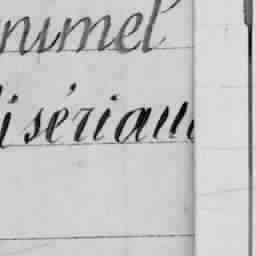 numel
isériau